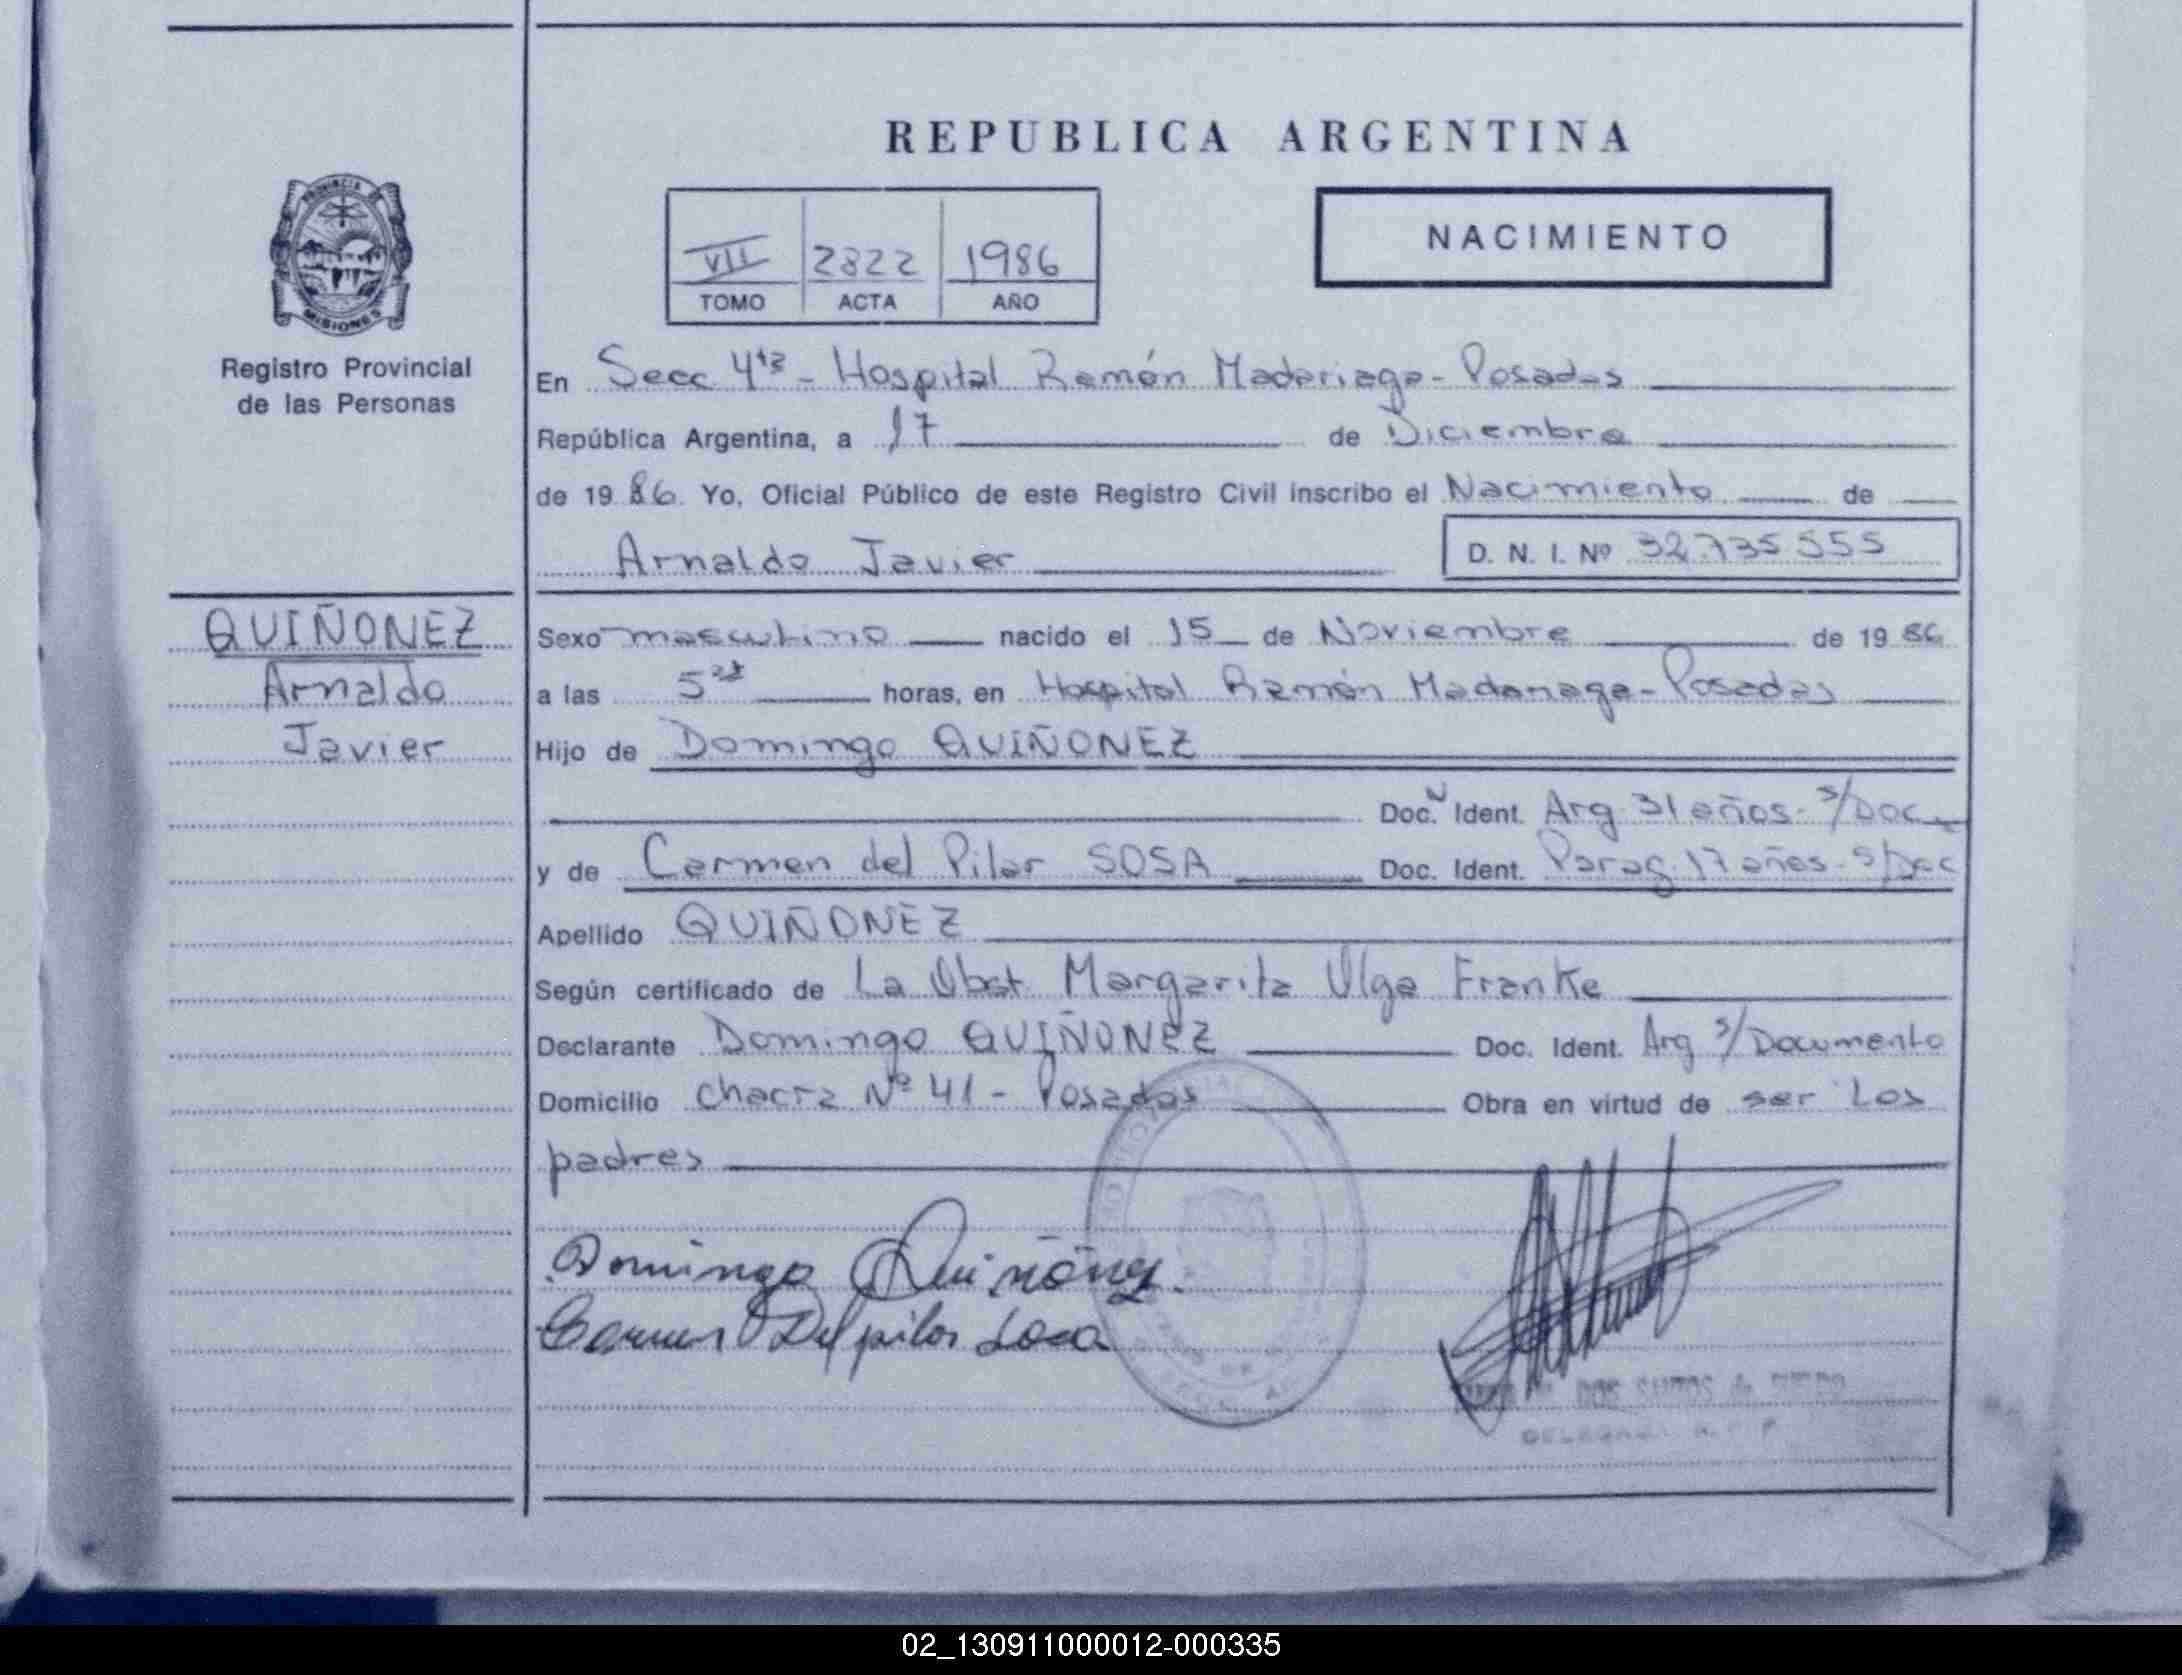 REPUBLICA ARGENTINA
NACIMIENTO
VII 2822 1986
TOMO ACTA AÑO
PROVINCIA
MISIONES
Registro Provincial
de las Personas
En Secc 4ta - Hospital Ramón Madariaga - Posadas
República Argentina, a 17 de Diciembre
de 1986. Yo, Oficial Público de este Registro Civil inscribo el Nacimiento de
Arnaldo Javier D. N. I. Nº 32.735.555
QUIÑONEZ
Arnaldo
Javier
Sexo masculino nacido el 15 de Noviembre de 1986
a las 5 horas, en Hospital Ramón Madariaga - Posadas
Hijo de Domingo QUIÑONEZ
Doc. Ident. Arg. 31 años - s/Doc
y de Carmen del Pilar SOSA Doc. Ident. Parag. 17 años - s/Doc
Apellido QUIÑONEZ
Según certificado de La Obst. Margarita Olga Franke
Declarante Domingo QUIÑONEZ Doc. Ident. Arg s/Documento
Domicilio Chacra Nº 41 - Posadas Obra en virtud de ser Los
padres
Domingo Quiñónez.
Carmen Del pilar Sosa
DOS SANTOS de
DELEGADA R. P. P.
02_130911000012-000335